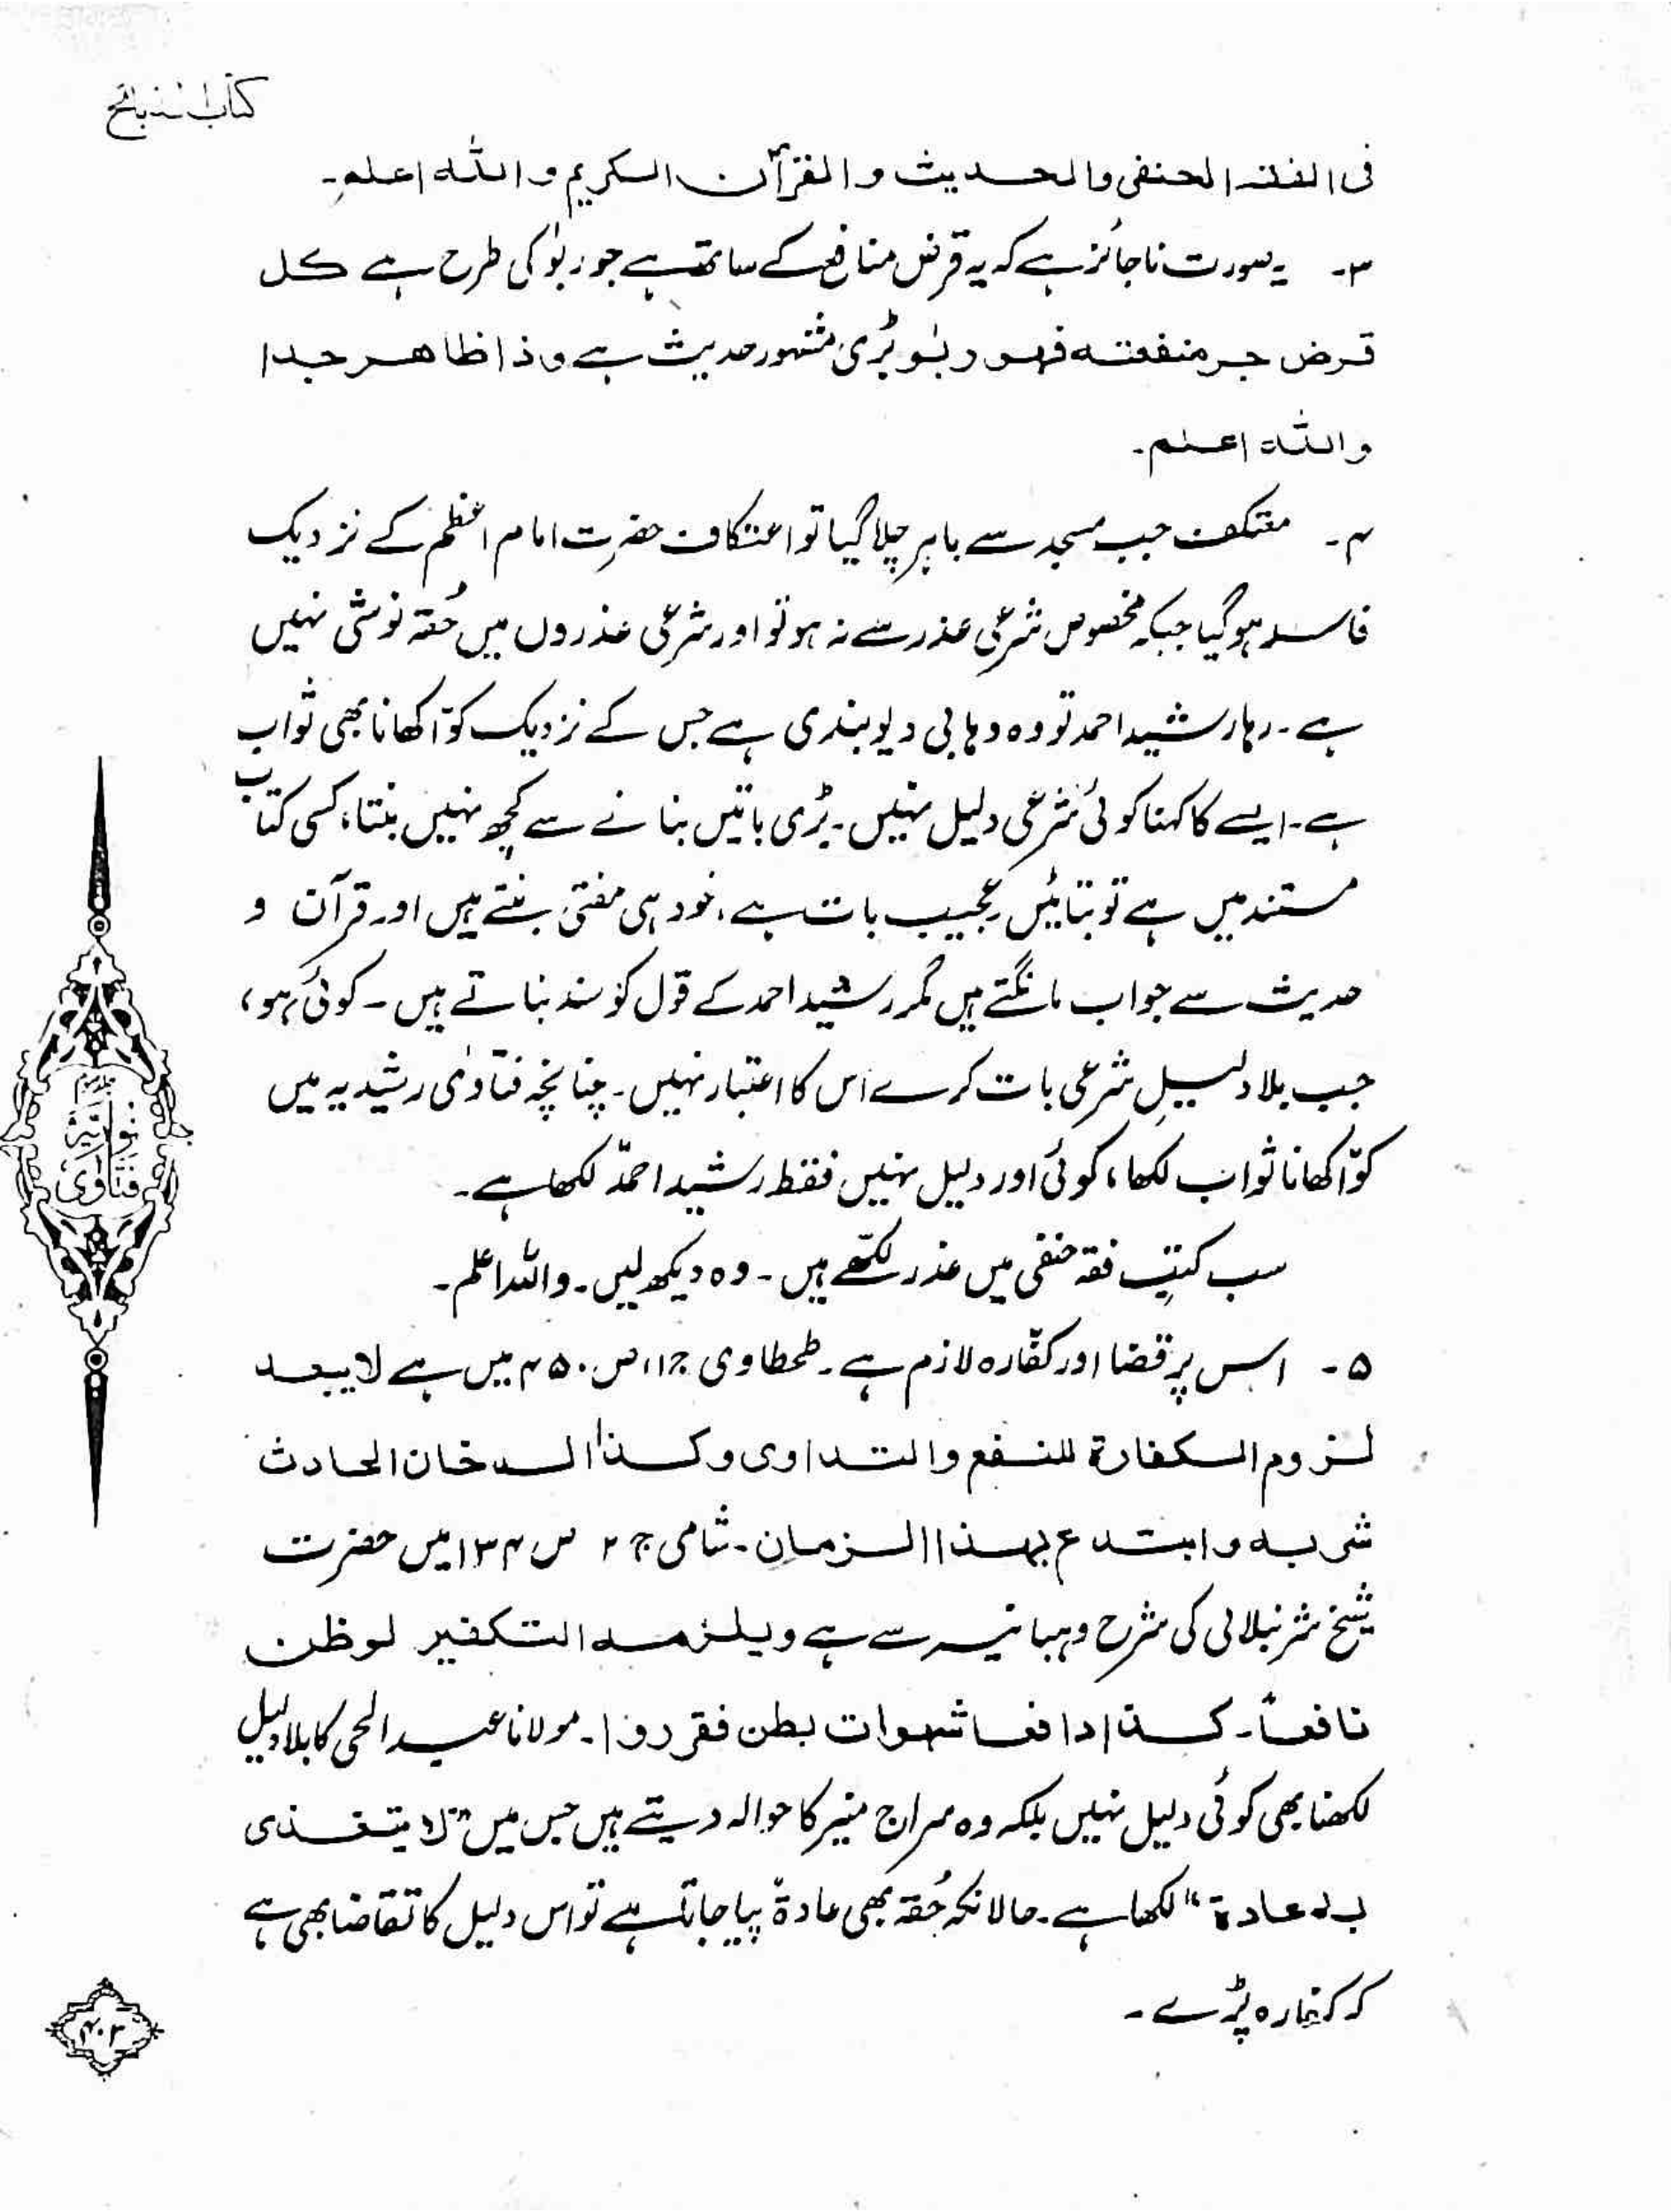 کتاب الذبائح
فی الفقہ الحنفی والحدیث والقرآن الکریم واللہ اعلم۔
۳۔ یہ صورت ناجائز ہے کہ یہ قرض منافع کے ساتھ ہے جو ربٰو کی طرح ہے کل
قرض جر منفعتہ فہو ربٰو بڑی مشہور حدیث ہے وذا ظاھر جدا
واللہ اعلم۔
۴۔ معتکف جب مسجد سے باہر چلا گیا تو اعتکاف حضرت امام اعظم کے نزدیک
فاسد ہو گیا جبکہ مخصوص شرعی عذر سے نہ ہو تو اور شرعی عذروں میں حُقہ نوشی نہیں
ہے۔ رہا رشید احمد تو وہ وہابی دیوبندی ہے جس کے نزدیک کوّا کھانا بھی ثواب
ہے۔ ایسے کا کہنا کوئی شرعی دلیل نہیں۔ بڑی باتیں بنانے سے کچھ نہیں بنتا، کسی کتاب
مستند میں ہے تو بتائیں۔ عجیب بات ہے، خود ہی مفتی بنتے ہیں اور قرآن و
حدیث سے جواب مانگتے ہیں مگر رشید احمد کے قول کو سند بناتے ہیں۔ کوئی ہو،
جب بلا دلیلِ شرعی بات کرے اس کا اعتبار نہیں۔ چنانچہ فتاوٰی رشیدیہ میں
کوّا کھانا ثواب لکھا، کوئی اور دلیل نہیں فقط رشید احمدؔ لکھا ہے۔
سب کتبِ فقہ حنفی میں عذر لکھے ہیں۔ وہ دیکھ لیں۔ واللہ اعلم۔
۵۔ اس پر قضا اور کفّارہ لازم ہے۔ طحطاوی ج۱، ص ۴۵۰ میں ہے لا یبعد
لزوم الکفارۃ للنفع والتداوی وکذا الدخان الحادث
شربہ وابتدع بہذا الزمان۔ شامی ج ۲ ص ۱۳۴ میں حضرت
شیخ شرنبلالی کی شرح وہبانیہ سے ہے ویلزمہ التکفیر لو ظن
نافعاً۔ کذا دافعا شہوات بطن فقرروا۔ مولانا عبد الحی کا بلا دلیل
لکھنا بھی کوئی دلیل نہیں بلکہ وہ سراج منیر کا حوالہ دیتے ہیں جس میں ”لا یتغذی
بہ عادۃ“ لکھا ہے۔ حالانکہ حُقہ بھی عادۃً پیا جاتا ہے تو اس دلیل کا تقاضا بھی ہے
کہ کفارہ پڑے۔
فتاوٰی نوریّہ
۴۰۳